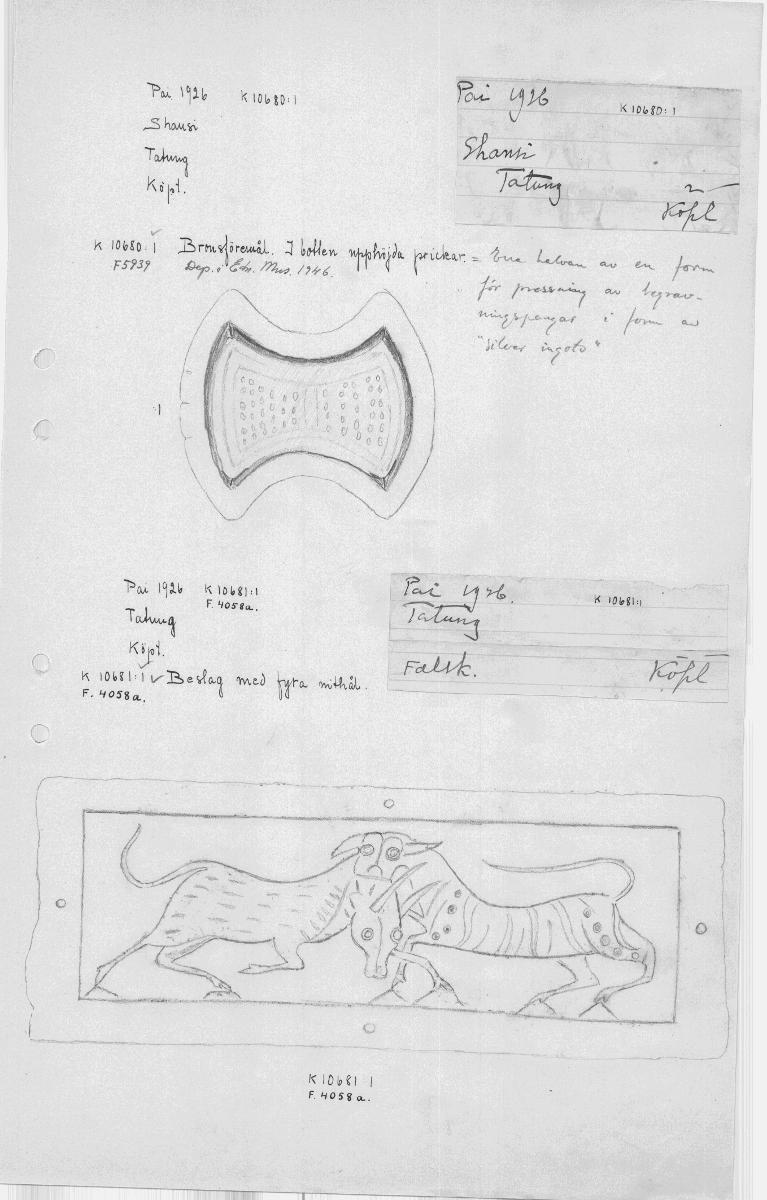 Pai 1926 K 10680:1
Shansi
Tatung
Köpt.
Pai 1926
K 10680:1
Shansi
Tatung
2
Köpt
K 10680:1 Bronsföremål. I botten upphöjda prickar.
F5939 Dep. i Etn. Mus. 1946.
= Ena halvan av en form
för pressning av begrav-
ningspengar i form av
"silver ingots"
:1
Pai 1926 K 10681:1
F. 4058a.
Tatung
Köpt.
K 10681:1 Beslag med fyra nithål.
F. 4058a.
Pai 1926.
K 10681:1
Tatung
Falsk.
Köpt
K 10681:1
F. 4058a.